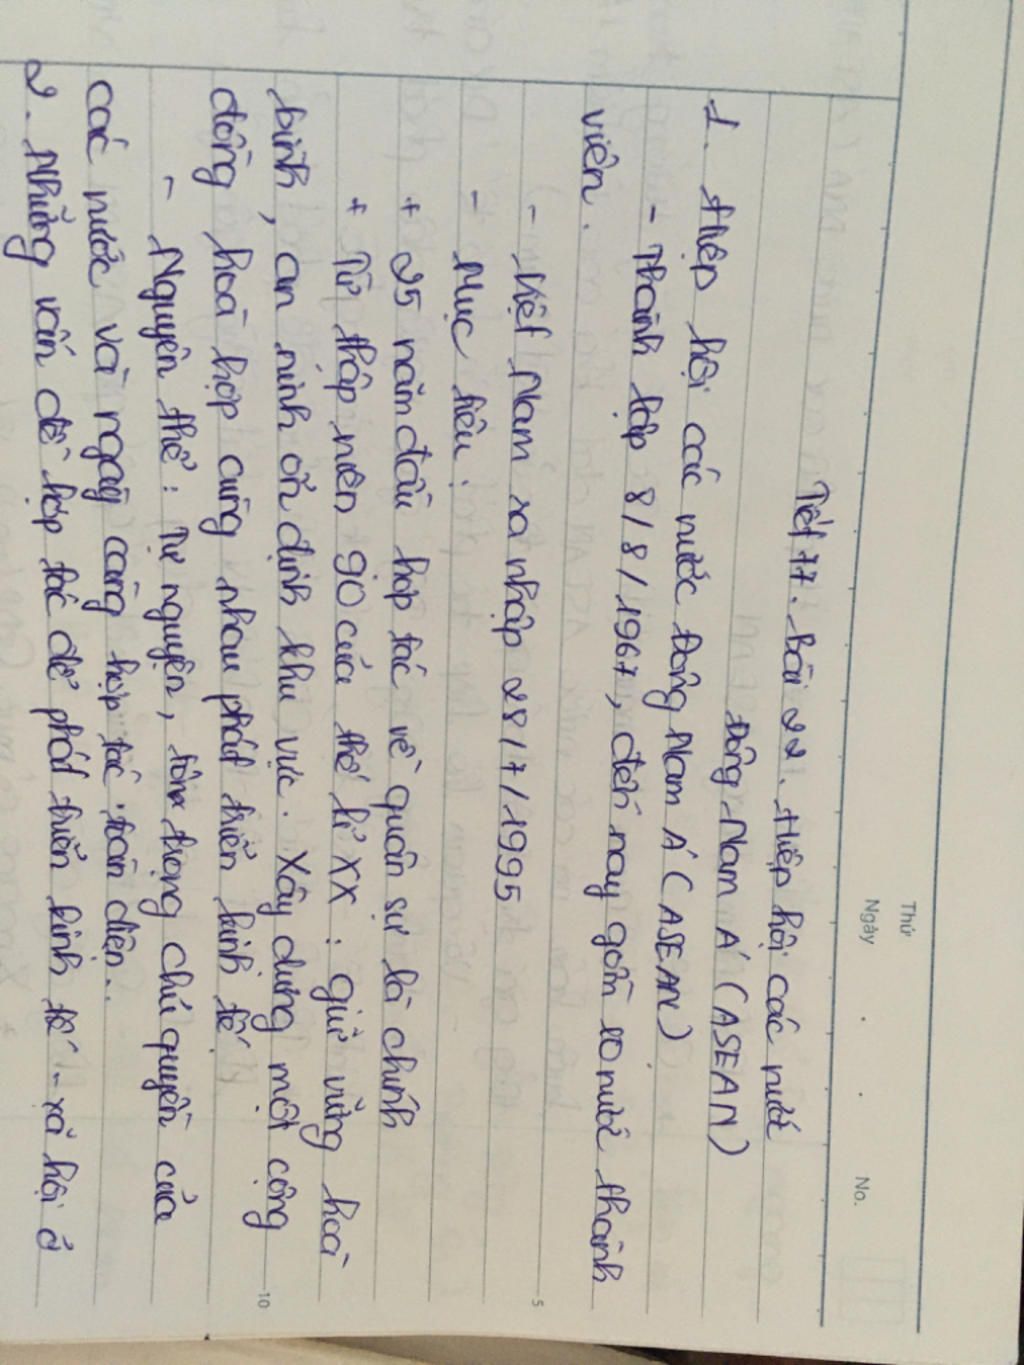 Thứ
Ngày . . No.
Tiết 77. Bài 22. Hiệp hội các nước
Đông Nam Á (ASEAN)
1. Hiệp hội các nước Đông Nam Á (ASEAN)
- Thành lập 8/8/1967, đến nay gồm 10 nước thành
viên.
- Việt Nam ra nhập 28/7/1995
- Mục tiêu:
+ 25 năm đầu hợp tác về quân sự là chính
+ Từ thập niên 90 của thế kỉ XX: giữ vững hoà
bình, an ninh ổn định khu vực. Xây dựng một cộng
đồng hoà hợp cùng nhau phát triển kinh tế.
- Nguyên thể: Tự nguyện, tôn trọng chủ quyền của
các nước và ngày càng hợp tác toàn diện..
2. Những vấn đề hợp tác để phát triển kinh tế - xã hội ở
5
10